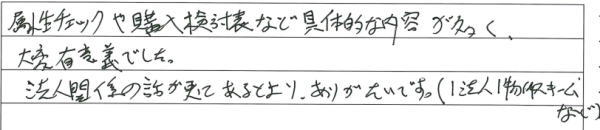 属性チェックや購入検討表など具体的な内容が多く、
大変有意義でした。
法人関係の話が更にあるとより、ありがたいです。(1法人1物件スキーム
など)